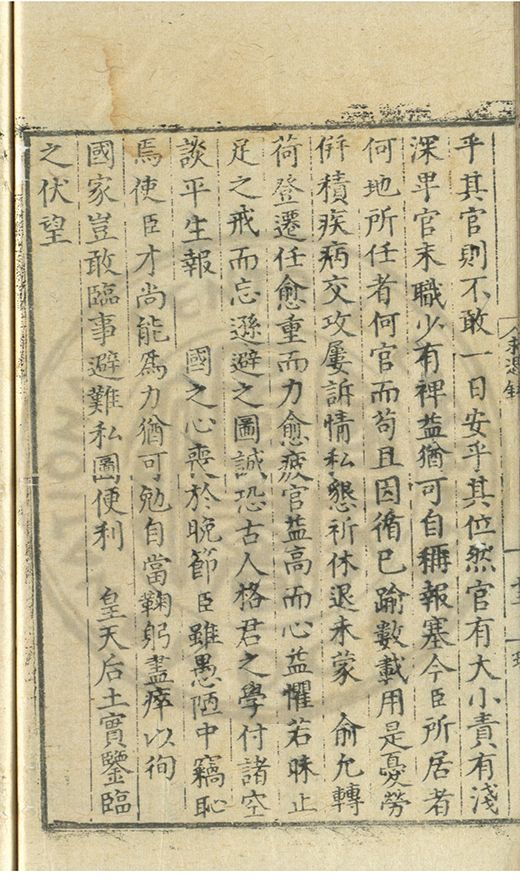 乎其官則不敢一日安乎其位然官有大小責有淺
深卑官末職少有裨益猶可自稱報塞今臣所居者
何地所任者何官而苟且因循已踰數載用是憂勞
併積疾病交攻屢訴情私懇祈休退未蒙 俞允轉
荷登遷任愈重而力愈疲官益高而心益懼若昧止
足之戒而忘遜避之圖誠恐古人格君之學付諸空
談平生報 國之心喪於晚節臣雖愚陋中竊恥
焉使臣才尚能爲力猶可勉自當鞠躬盡瘁以徇
國家豈敢臨事避難私圖便利 皇天后土實鑒臨
之伏望